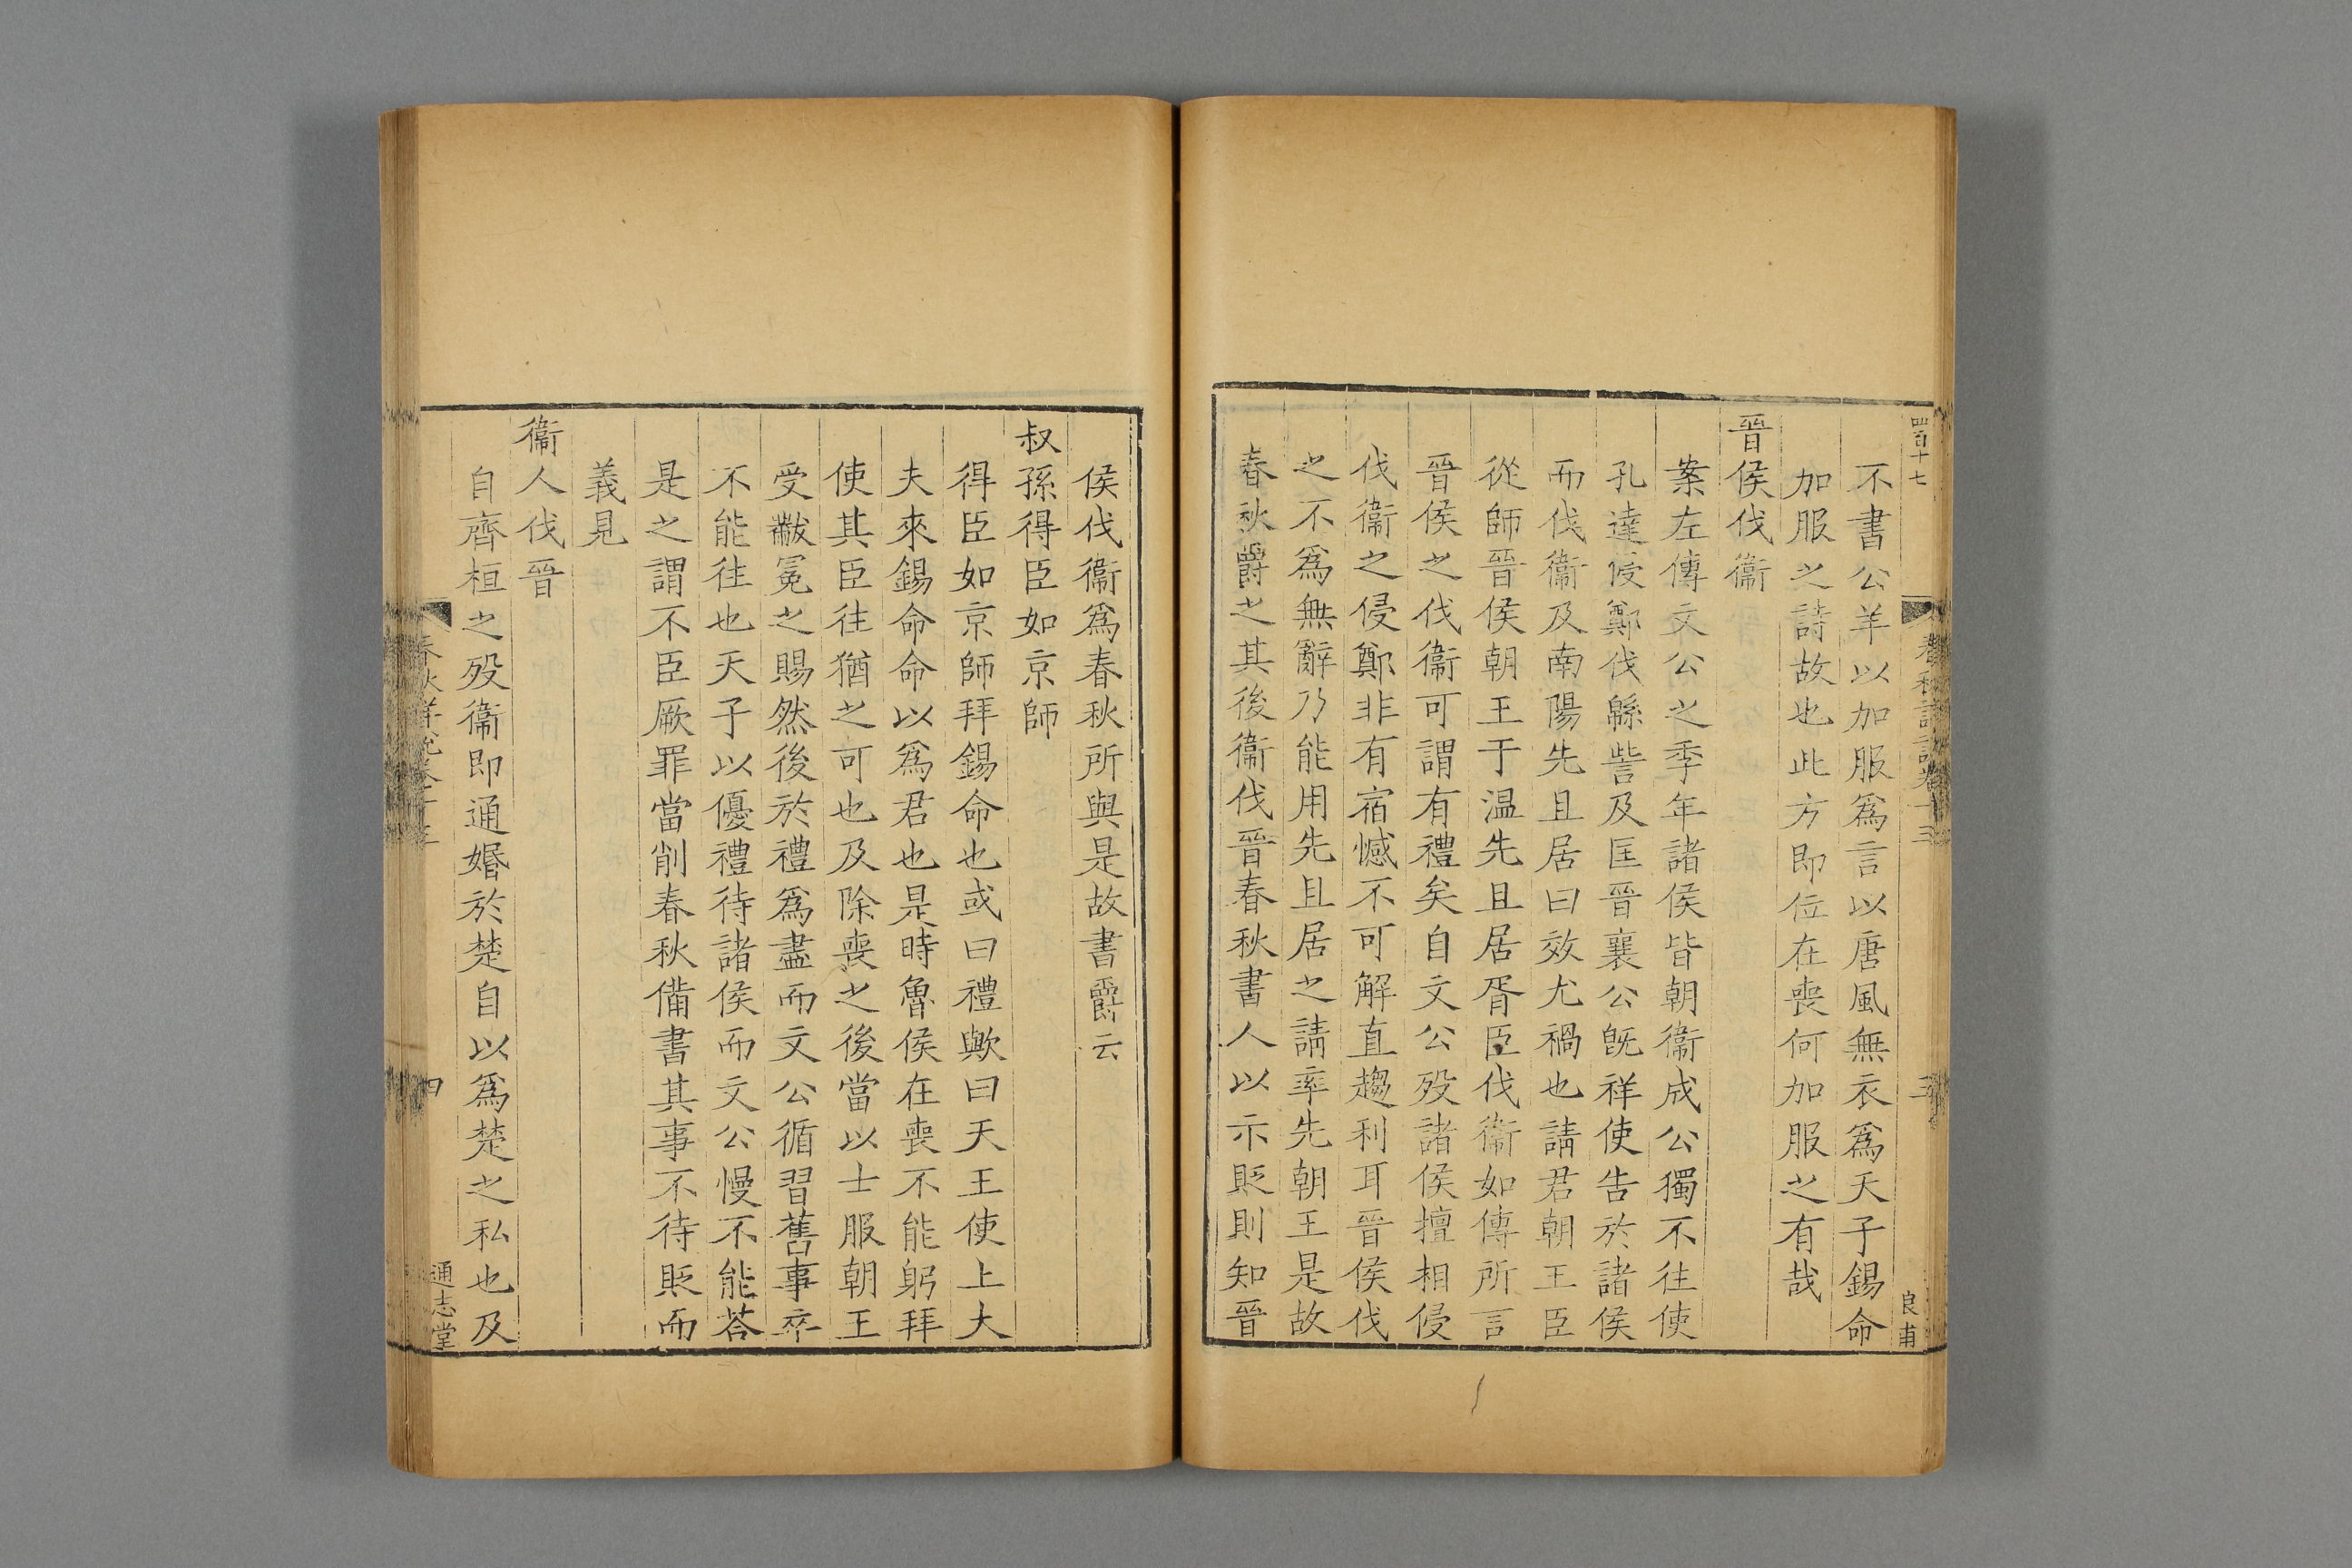 四百十七
春秋詳說卷十三
三
良甫
不書公羊以加服爲言以唐風無衣爲天子錫命
加服之詩故也此方即位在喪何加服之有哉
晉侯伐衞
案左傳文公之季年諸侯皆朝衞成公獨不往使
孔達侵鄭伐緜訾及匡晉襄公旣祥使告於諸侯
而伐衞及南陽先且居曰效尤禍也請君朝王臣
從師晉侯朝王于温先且居胥臣伐衞如傳所言
晉侯之伐衞可謂有禮矣自文公歿諸侯擅相侵
伐衞之侵鄭非有宿憾不可解直趨利耳晉侯伐
之不爲無辭乃能用先且居之請率先朝王是故
春秋爵之其後衞伐晉春秋書人以示貶則知晉
侯伐衞爲春秋所與是故書爵云
叔孫得臣如京師
得臣如京師拜錫命也或曰禮歟曰天王使上大
夫來錫命命以爲君也是時魯侯在喪不能躬拜
使其臣往猶之可也及除喪之後當以士服朝王
受黻冕之賜然後於禮爲盡而文公循習舊事卒
不能往也天子以優禮待諸侯而文公慢不能荅
是之謂不臣厥罪當削春秋備書其事不待貶而
義見
衞人伐晉
自齊桓之歿衞即通婚於楚自以爲楚之私也及
春秋詳說卷十三
四
通志堂